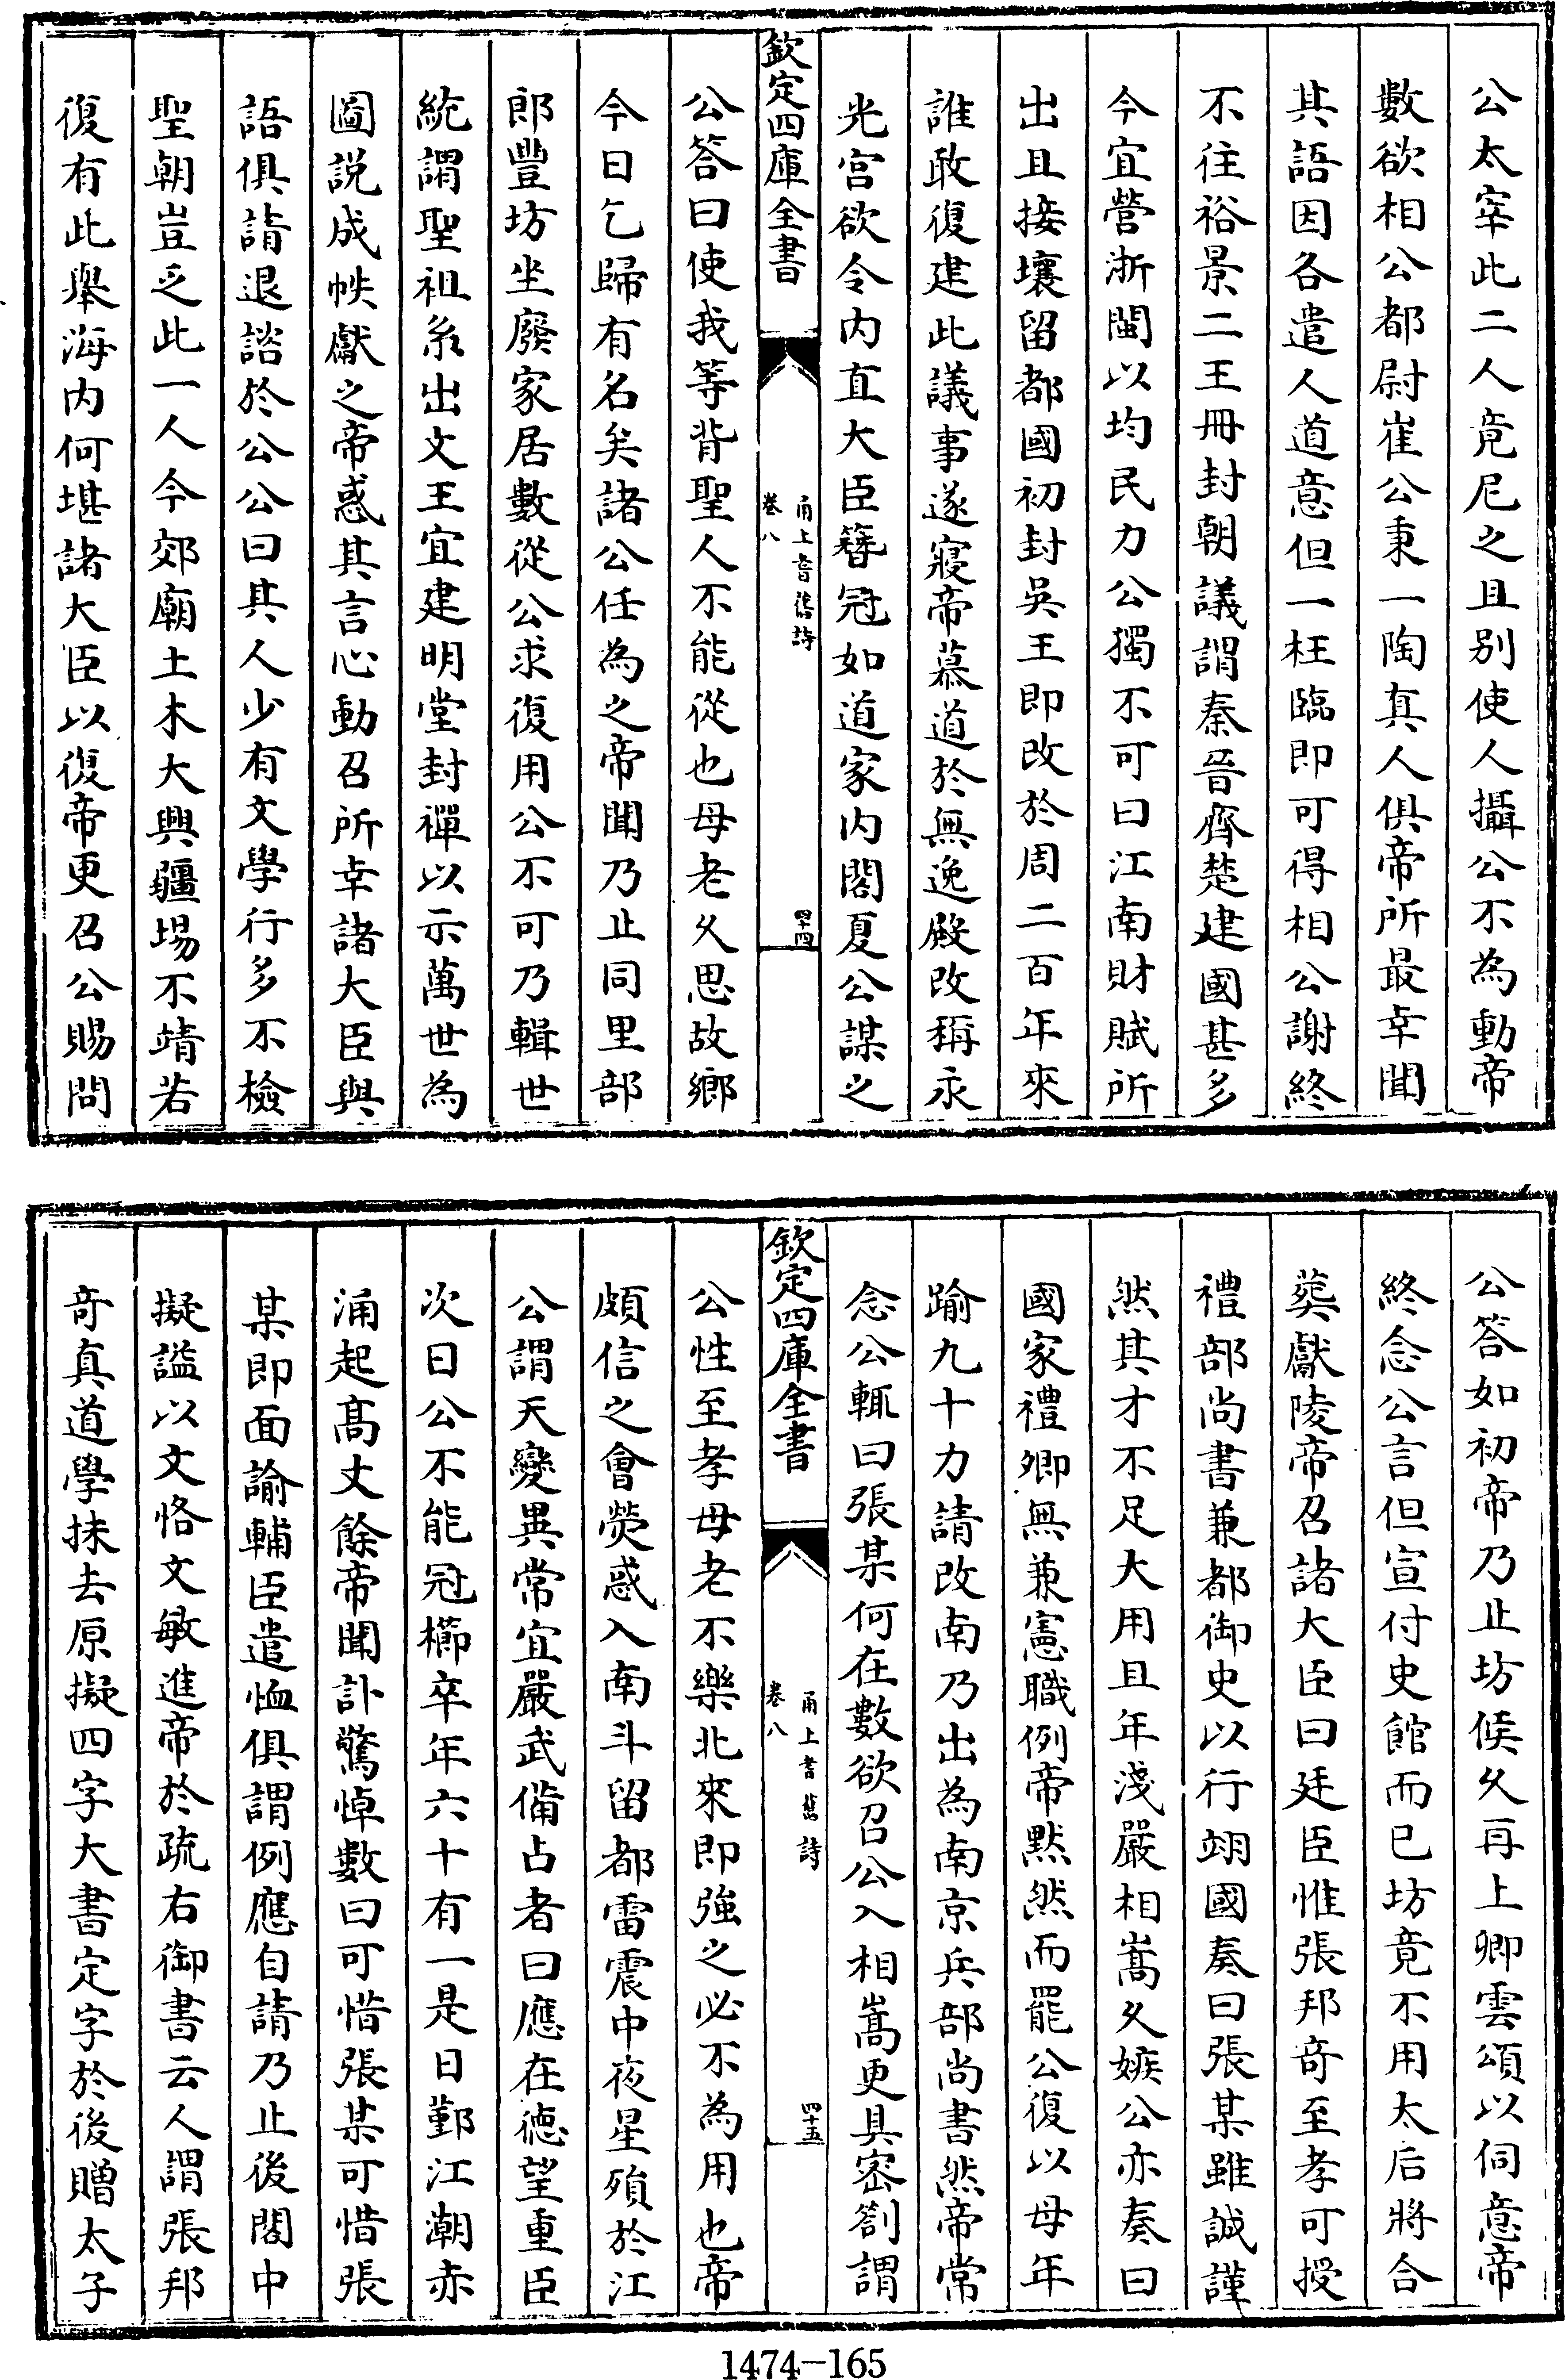 公太宰此二人竟尼之且別使人攝公不為動帝
數欲相公都尉崔公秉一陶真人俱帝所最幸聞
其語因各遣人道意但一枉臨即可得相公謝終
不往裕景二王冊封朝議謂秦晉齊楚建國甚多
今宜營浙閩以均民力公獨不可曰江南財賦所
出且接壤留都國初封吳王即改於周二百年來
誰敢復建此議事遂寢帝慕道於無逸殿改稱永
光宮欲令內直大臣簪冠如道家內閣夏公謀之
欽定四庫全書
甬上耆舊詩
卷八
四十四
公答曰使我等背聖人不能從也母老久思故鄉
今日乞歸有名矣諸公任為之帝聞乃止同里部
郎豐坊坐廢家居數從公求復用公不可乃輯世
統謂聖祖系出文王宜建明堂封禪以示萬世為
圖説成帙獻之帝惑其言心動召所幸諸大臣與
語俱請退諮於公公曰其人少有文學行多不檢
聖朝豈乏此一人今郊廟土木大興疆場不靖若
復有此舉海內何堪諸大臣以復帝更召公賜問
公答如初帝乃止坊候久再上卿雲頌以伺意帝
終念公言但宣付史館而已坊竟不用太后將合
葬獻陵帝召諸大臣曰廷臣惟張邦奇至孝可授
禮部尚書兼都御史以行翊國奏曰張某雖誠謹
然其才不足大用且年淺嚴相嵩久嫉公亦奏曰
國家禮卿無兼憲職例帝默然而罷公復以母年
踰九十力請改南乃出為南京兵部尚書然帝常
念公輒曰張某何在數欲召公入相嵩更具密劄謂
欽定四庫全書
甬上耆舊詩
卷八
四十五
公性至孝母老不樂北來即強之必不為用也帝
頗信之會熒惑入南斗留都雷震中夜星殞於江
公謂天變異常宜嚴武備占者曰應在德望重臣
次日公不能冠櫛卒年六十有一是日鄞江潮赤
涌起髙丈餘帝聞訃驚悼數曰可惜張某可惜張
某即面諭輔臣遣恤俱謂例應自請乃止後閣中
擬謚以文恪文敏進帝於疏右御書云人謂張邦
奇真道學抹去原擬四字大書定字於後贈太子
1474-165